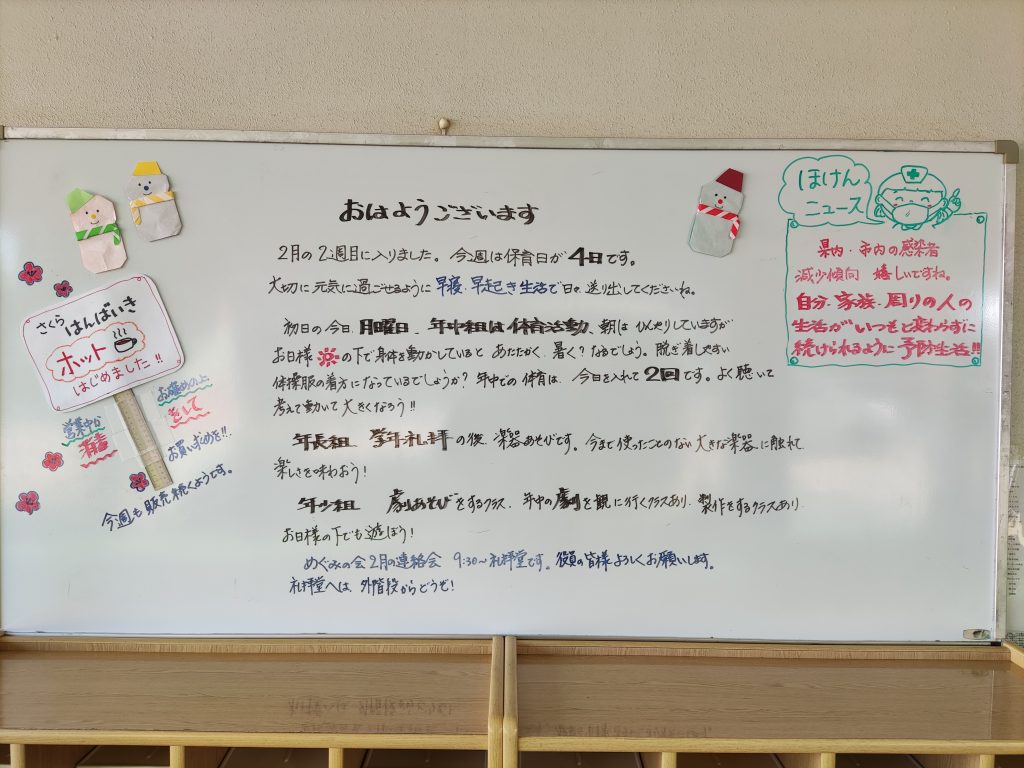 おはようございます
2月の2週目に入りました。今週は保育日が4日です。
大切に元気に過ごせるように早寝・早起き生活で日々送り出してくださいね。
初日の今日、月曜日、年中組は体育活動、朝は ひんやりしていますが
お日様の下で身体を動かしていると あたたかく、暑く?なるでしょう。脱ぎ着しやすい
体操服の着方になっているでしょうか?年中での体育は、今日を入れて2回です。よく聴いて
考えて動いて大きくなろう!!
年長組 学年礼拝の後、楽器あそびです。今まで使ったことのない大きな楽器に触れて
楽しさを味わおう!
年少組 劇あそびをするクラス、年中の劇を観に行くクラスあり、製作をするクラスあり
お日様の下でも遊ぼう!
めぐみの会2月の連絡会 9:30~礼拝堂です。役員の皆様よろしくお願いします。
礼拝堂へは、外階段からどうぞ!
さくら はんばいき
ホット
はじめました!!
営業中か
消毒
お薦めの上
をして
お買い求めを!!
今週も販売続くようです。
ほけん
ニュース
県内・市内の感染者
減少傾向 嬉しいですね。
自分・家族・周りの人の
生活がいつもと変わらずに
続けられるように予防生活!!